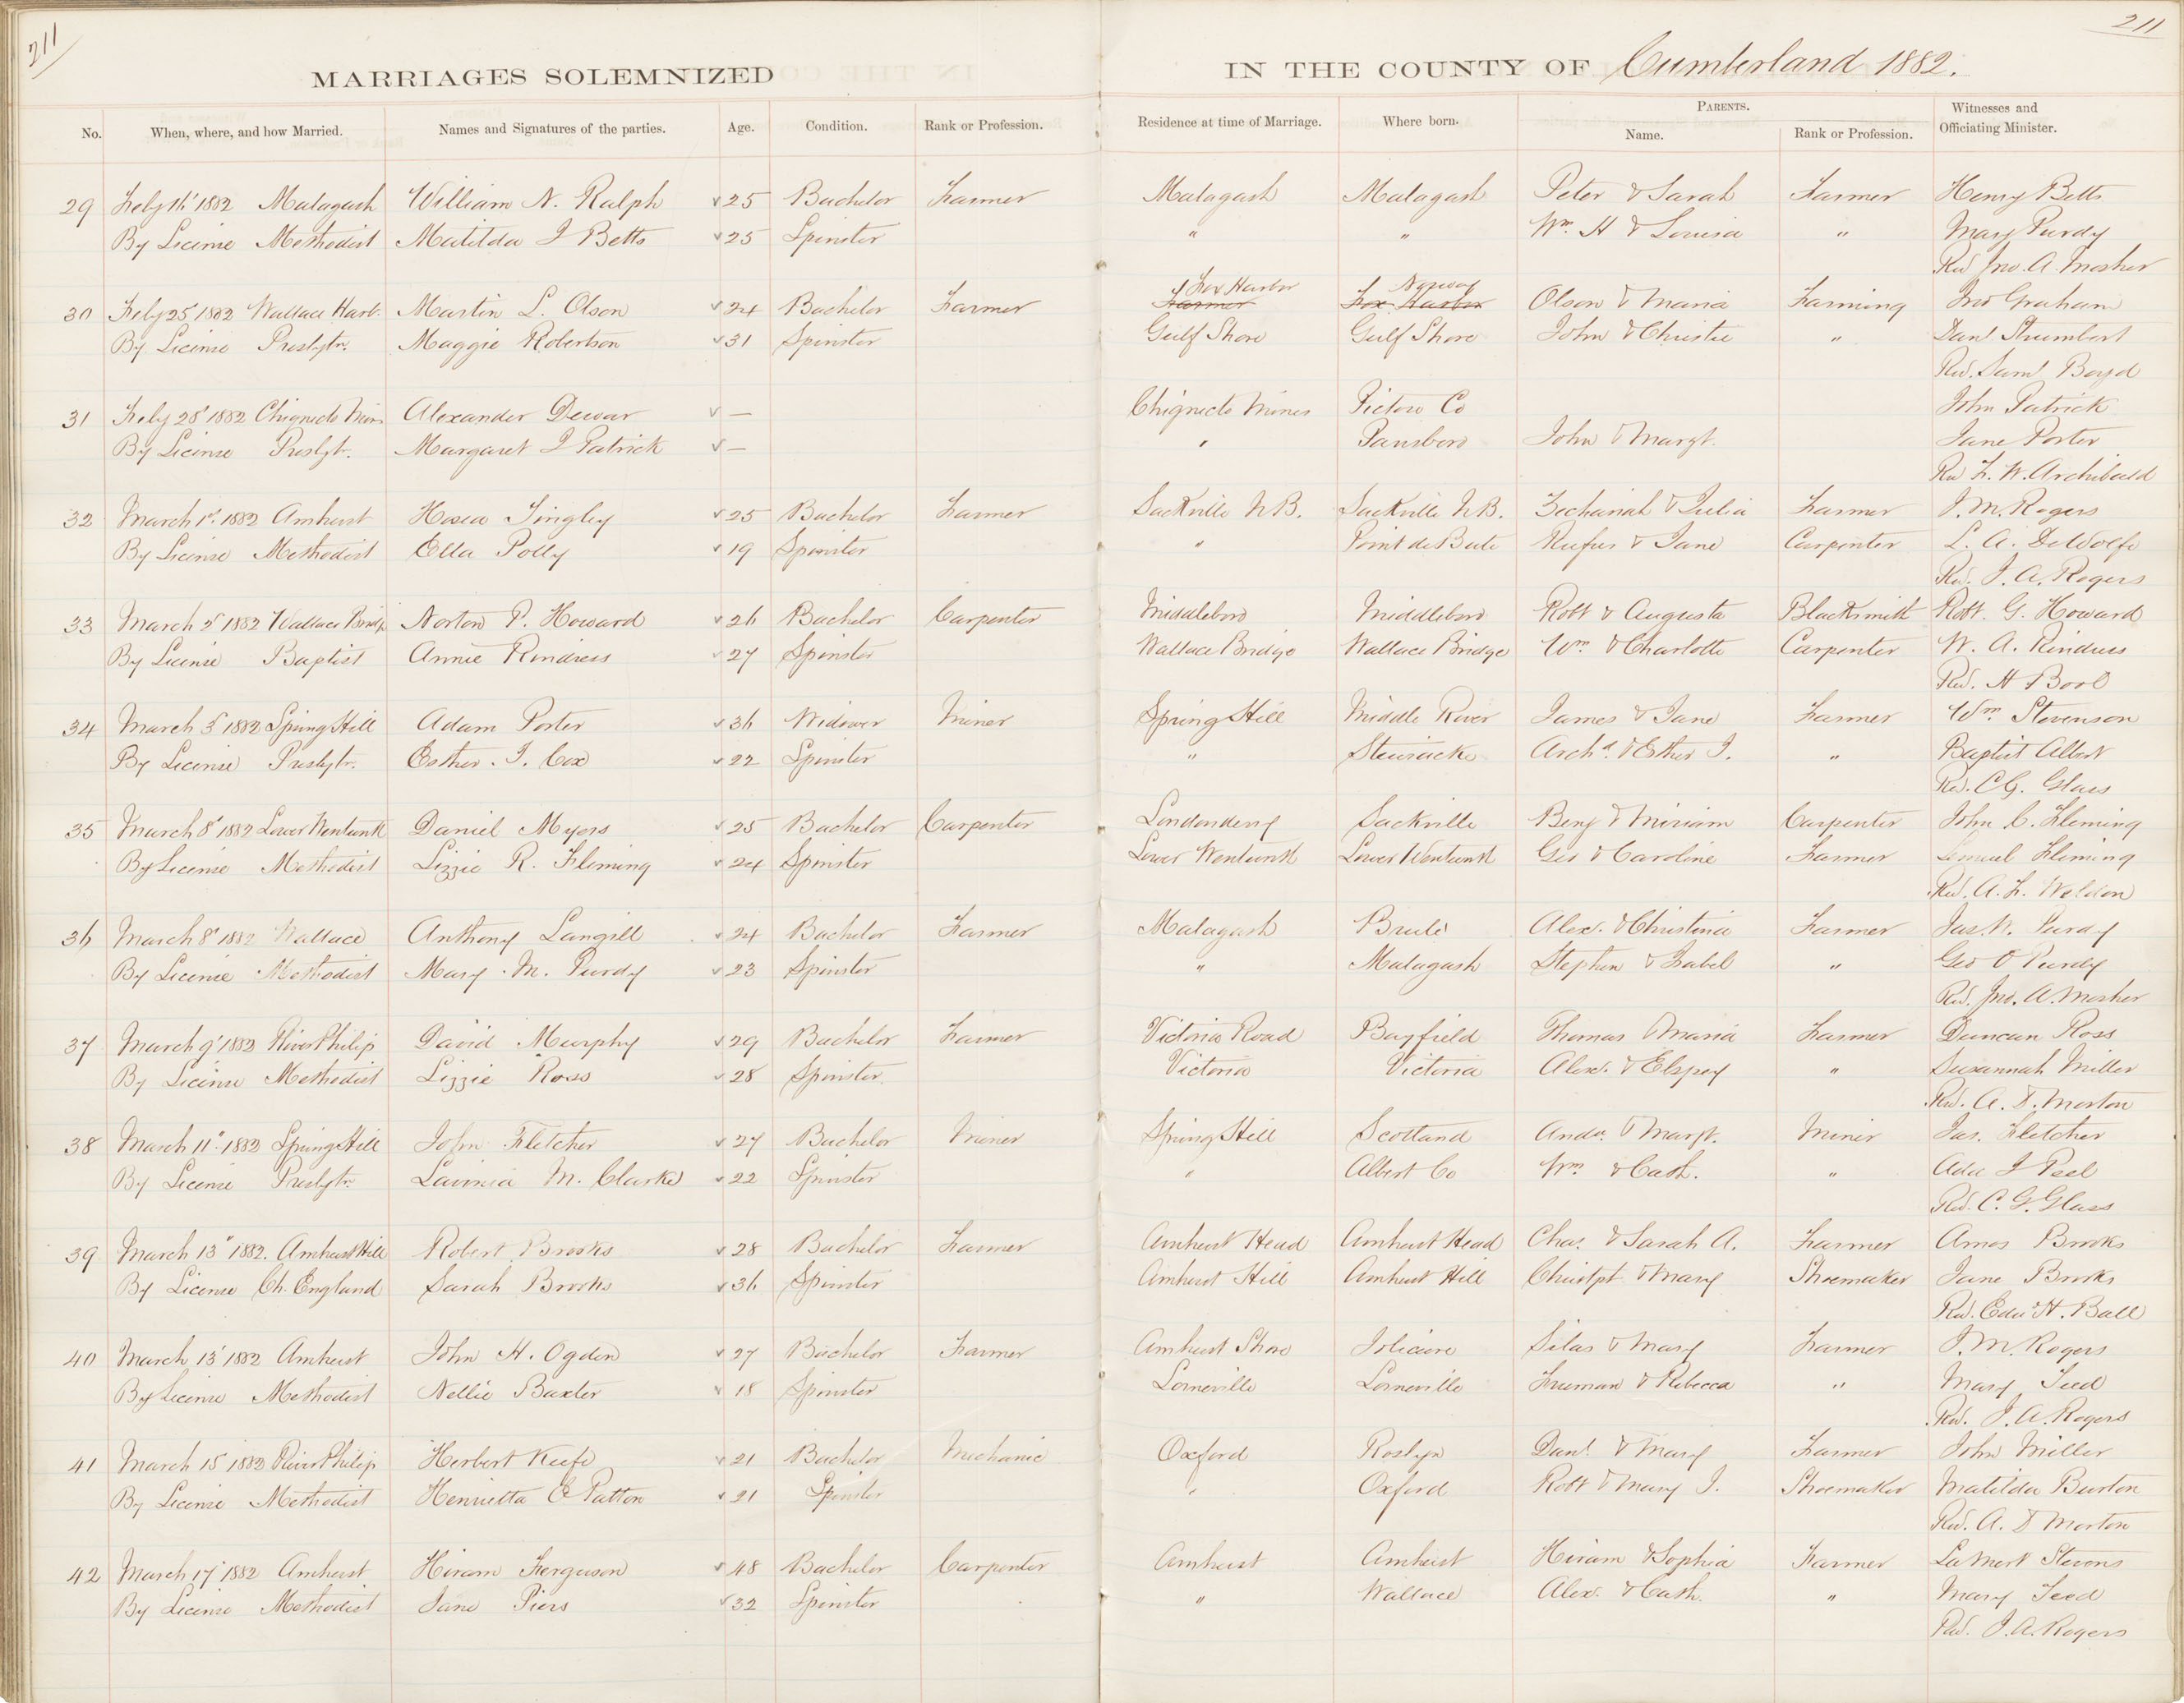 211
211
MARRIAGES SOLEMNIZED IN THE COUNTY OF Cumberland 1882.
No. When, where, and how Married. Names and Signatures of the parties. Age. Condition. Rank or Profession. Residence at time of Marriage. Where born. PARENTS. Name. Rank or Profession. Witnesses and Officiating Minister.
29 Feby 16' 1882 Malagash William N. Ralph 25 Bachelor Farmer Malagash Malagash Peter & Sarah Farmer Henry Betts
By License Methodist Matilda J Betts 25 Spinster " " Wm. H & Louisa " Mary Purdy
Rev Jno. A. Mosher
Fox Harbor Norway
30 Feby 25' 1882 Wallace Harb. Martin L. Olson 24 Bachelor Farmer Farmer Fox Harbor Olson & Maria Farming Jno Graham
By License Presbytn. Maggie Robertson 31 Spinster Gulf Shore Gulf Shore John & Christie " Danl
Rev. Saml Boyd
31 Feby 28' 1882 Chignecto Mines Alexander Dewar — Chignecto Mines Pictou Co John Patrick
By License Presbyt. Margaret J Patrick — " Parrsboro John & Margt. Jane Porter
Rev F. W. Archibald
32 March 1st. 1882 Amherst Hosea Tingley 25 Bachelor Farmer Sackville N.B. Sackville N.B. Zechariah & Julia Farmer J. M. Rogers
By License Methodist Ella Polly 19 Spinster " Point de Bute Rufus & Jane Carpenter L. A. DeWolfe
Rev. J. A. Rogers
33 March 2' 1882 Wallace Bridge Norton P. Howard 26 Bachelor Carpenter Middleboro Middleboro Robt & Augusta Blacksmith Robt. G. Howard
By License Baptist Annie Rindress 27 Spinster Wallace Bridge Wallace Bridge Wm & Charlotte Carpenter W. A. Rindress
Rev. H Bool
34 March 3' 1882 Spring Hill Adam Porter 36 Widower Miner Spring Hill Middle River James & Jane Farmer Wm Stevenson
By License Presbytr. Esther. J. Cox 22 Spinster " Stewiacke Archd. & Esther J. " Baptist Albert
Rev. C. G. Glass
35 March 8' 1882 Lower Wentworth Daniel Myers 25 Bachelor Carpenter Londonderry Sackville Benj & Miriam Carpenter John C. Fleming
By License Methodist Lizzie R. Fleming 24 Spinster Lower Wentworth Lower Wentworth Geo & Caroline Farmer Lemuel Fleming
Rev. A. F. Weldon
36 March 8' 1882 Wallace Anthony Langill 24 Bachelor Farmer Malagash Brule Alex. & Christina Farmer Jas. W. Purdy
By License Methodist Mary. M. Purdy 23 Spinster " Malagash Stephen & Isabel " Geo O Purdy
Rev. Jno. A. Mosher
37 March 9' 1882 River Philip David Murphy 29 Bachelor Farmer Victoria Road Bayfield Thomas & Maria Farmer Duncan Ross
By License Methodist Lizzie Ross 28 Spinster. Victoria Victoria Alex. & Elspey " Susannah Miller
Rev. A. D. Morton
38 March 11" 1882 Spring Hill John Fletcher 27 Bachelor Miner Spring Hill Scotland Andw. & Margt. Miner Jas. Fletcher
By License Presbytr. Lavinia M. Clarke 22 Spinster " Albert Co Wm & Cath. " Ada J Peel
Rev. C. G. Glass
39 March 13" 1882. Amherst Hill Robert Brooks 28 Bachelor Farmer Amherst Head Amherst Head Chas. & Sarah A. Farmer Amos Brooks
By License Ch. England Sarah Brooks 36 Spinster Amherst Hill Amherst Hill Christpr & Mary Shoemaker Jane Brooks
Rev. Edwd H. Ball
40 March 13' 1882 Amherst John H. Ogden 27 Bachelor Farmer Amherst Shore Jolicure Silas & Mary Farmer J. M. Rogers
By License Methodist Nellie Baxter 18 Spinster Lorneville Lorneville Freeman & Rebecca " Mary Teed
Rev. J. A. Rogers
41 March 15' 1882 River Philip Herbert Keefe 21 Bachelor Mechanic Oxford Roslyn Danl. & Mary Farmer John Miller
By License Methodist Henrietta E Patton 21 Spinster " Oxford Robt & Mary J. Shoemaker Matilda Burton
Rev. A. D Morton
42 March 17' 1882 Amherst Hiram Ferguson 48 Bachelor Carpenter Amherst Amherst Hiram & Sophia Farmer Stevens
By License Methodist Jane Piers 32 Spinster " Wallace Alex. & Cath. " Mary Teed
Rev. J. A. Rogers